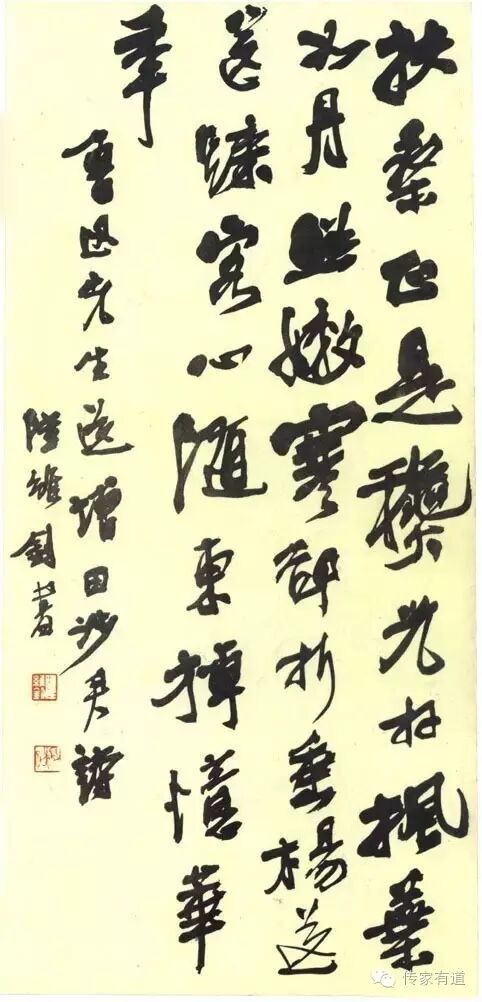 扶桒正是龝光好楓葉
如丹照嫩寒卻折垂楊送
送歸客心隨東棹憶華
年
魯迅先生送增田涉君詩
陸維釗書
传家有道